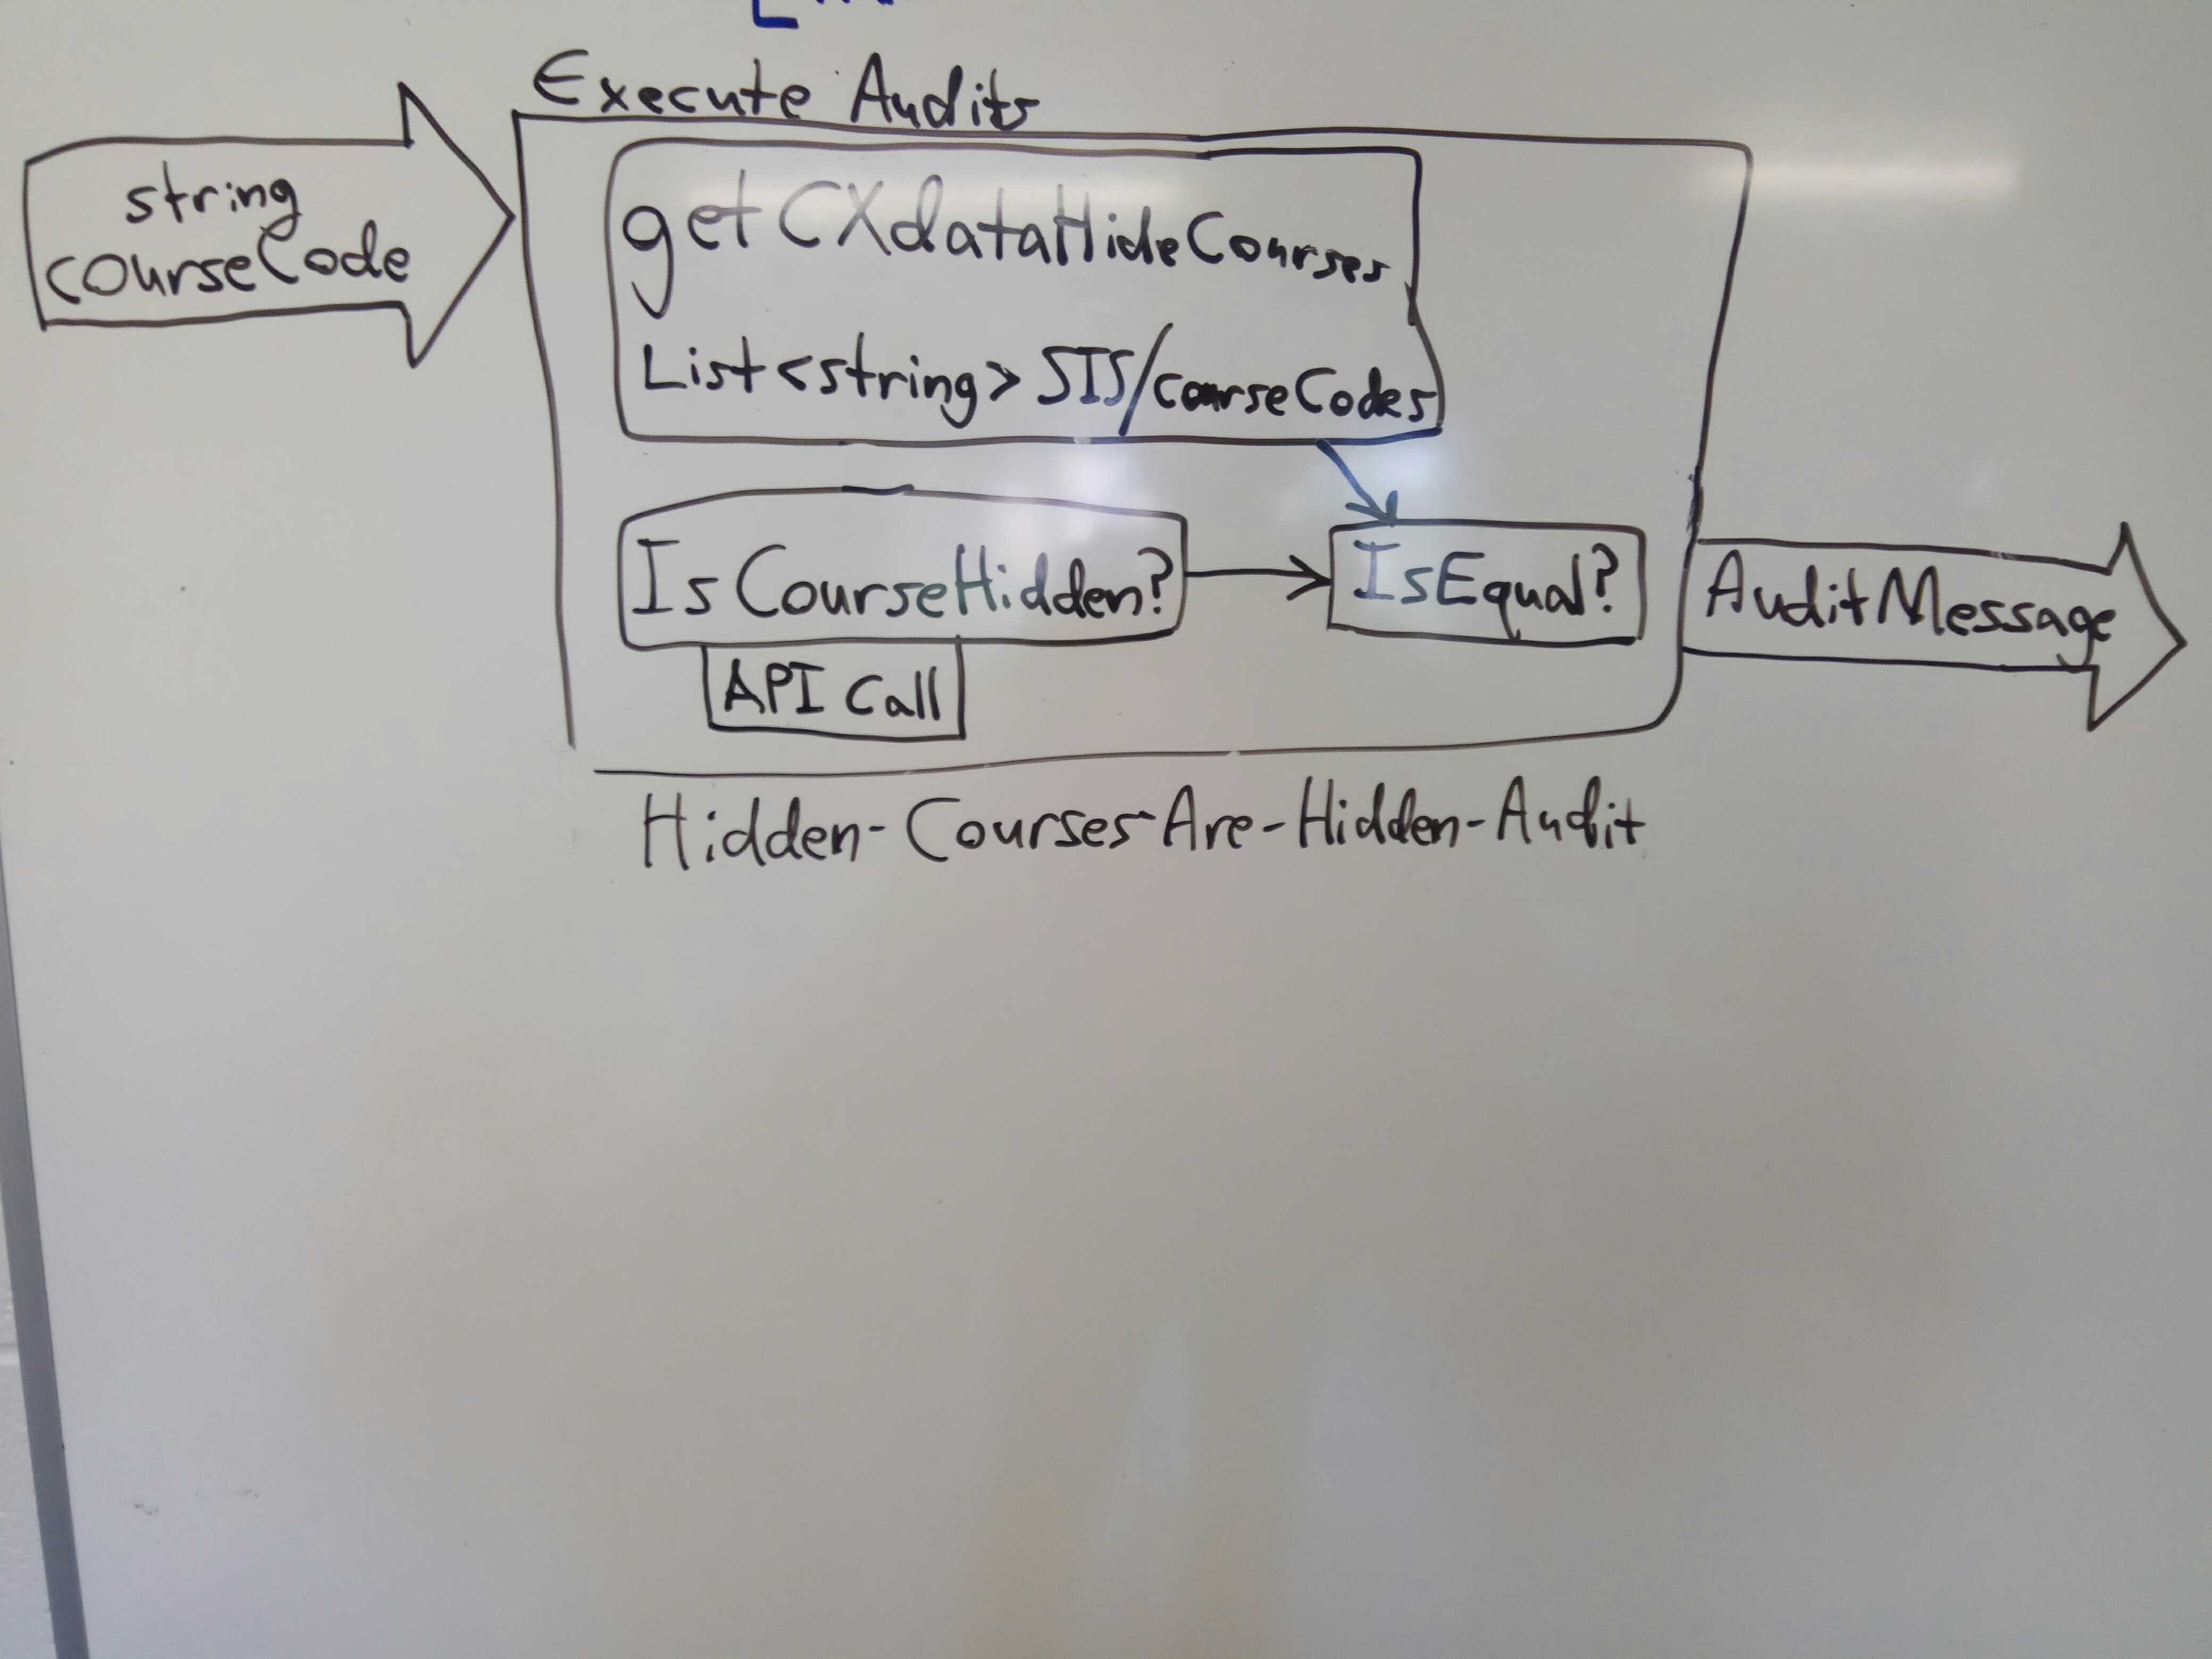 Execute Audits
string
courseCode
getCXdataHideCourses
List<string> SIS/courseCodes
IsCourseHidden?
IsEqual?
AuditMessage
API Call
Hidden-Courses-Are-Hidden-Audit